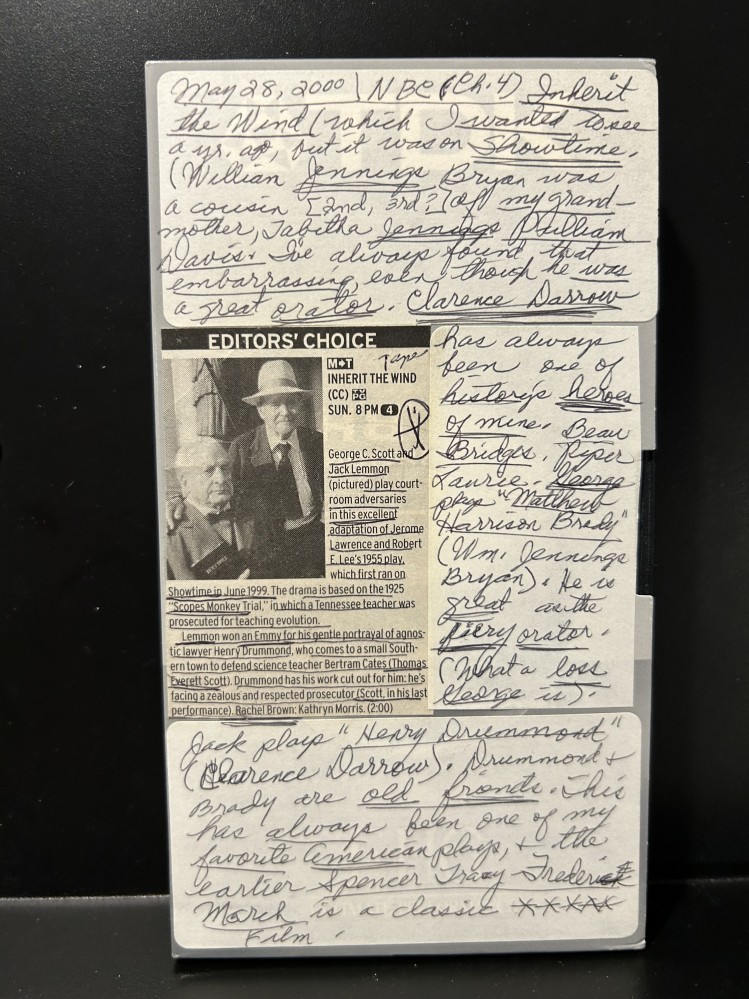 May 28, 2000 | NBC (Ch. 4) Inherit
the Wind (which I wanted to see
a yr. ago, but it was on Showtime.
(William Jennings Bryan was
a cousin [2nd, 3rd?] of my grand-
mother, Tabitha Jennings Pulliam
Davis. I've always found that
embarrassing, even though he was
a great orator. Clarence Darrow
EDITORS' CHOICE
M→T Tape
INHERIT THE WIND
(CC) TV PG
SUN. 8 PM 4
George C. Scott and
Jack Lemmon
(pictured) play court-
room adversaries
in this excellent
adaptation of Jerome
Lawrence and Robert
E. Lee's 1955 play,
which first ran on
Showtime in June 1999. The drama is based on the 1925
"Scopes Monkey Trial," in which a Tennessee teacher was
prosecuted for teaching evolution.
Lemmon won an Emmy for his gentle portrayal of agnos-
tic lawyer Henry Drummond, who comes to a small South-
ern town to defend science teacher Bertram Cates (Thomas
Everett Scott). Drummond has his work cut out for him: he's
facing a zealous and respected prosecutor (Scott, in his last
performance). Rachel Brown: Kathryn Morris. (2:00)
has always
been one of
history's heroes
of mine. Beau
Bridges, Piper
Laurie. George
plays "Matthew
Harrison Brady"
(Wm. Jennings
Bryan). He is
great as the
fiery orator.
(What a loss
George is).
Jack plays "Henry Drummond"
(Clarence Darrow). Drummond +
Brady are old friends. This
has always been one of my
favorite American plays, + the
earlier Spencer Tracy - Frederick
March is a classic
Film.